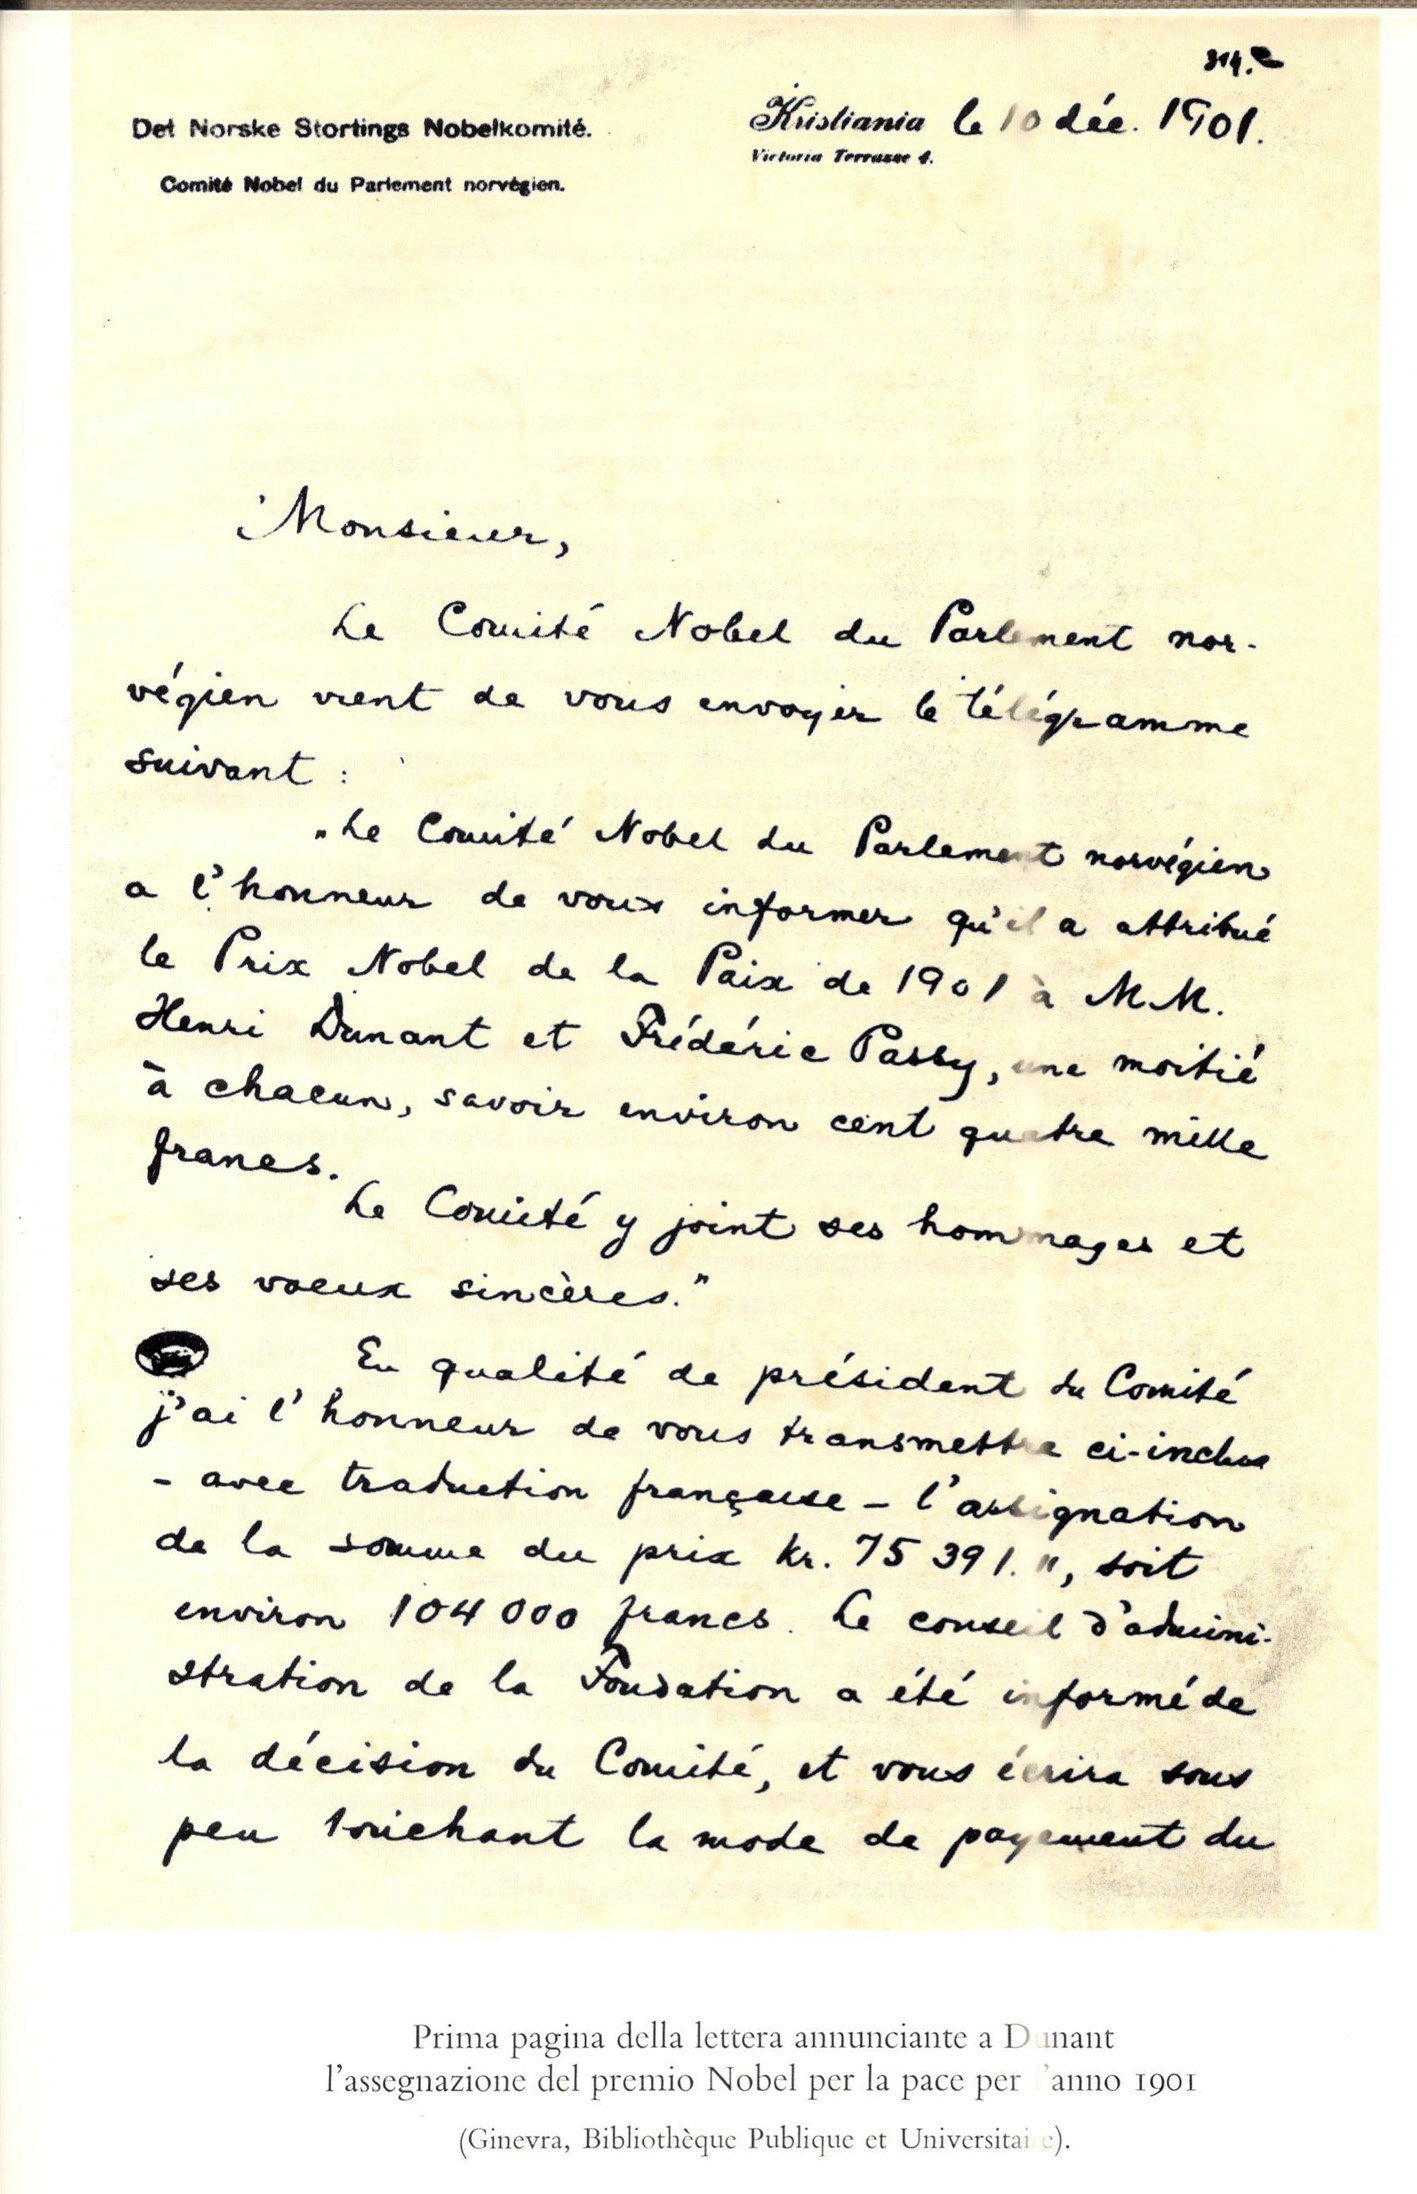 Det Norske Stortings Nobelkomité.
Comité Nobel du Parlement norvégien.
Kristiania le 10 déc. 1901.
Victoria Terrasse 4.
Monsieur,
Le Comité Nobel du Parlement nor-
végien vient de vous envoyer le télégramme
suivant :
„Le Comité Nobel du Parlement norvégien
a l'honneur de vous informer qu'il a attribué
le Prix Nobel de la Paix de 1901 à MM.
Henri Dunant et Frédéric Passy, une moitié
à chacun, savoir environ cent quatre mille
francs.
Le Comité y joint ses hommages et
ses voeux sincères."
En qualité de président du Comité
j'ai l'honneur de vous transmettre ci-inclus
- avec traduction française - l'assignation
de la somme du prix kr. 75 391. ", soit
environ 104 000 francs. Le conseil d'admini-
stration de la Fondation a été informé de
la décision du Comité, et vous écrira sous
peu touchant la mode de payement du
Prima pagina della lettera annunciante a Dunant
l'assegnazione del premio Nobel per la pace per l'anno 1901
(Ginevra, Bibliothèque Publique et Universitaire).